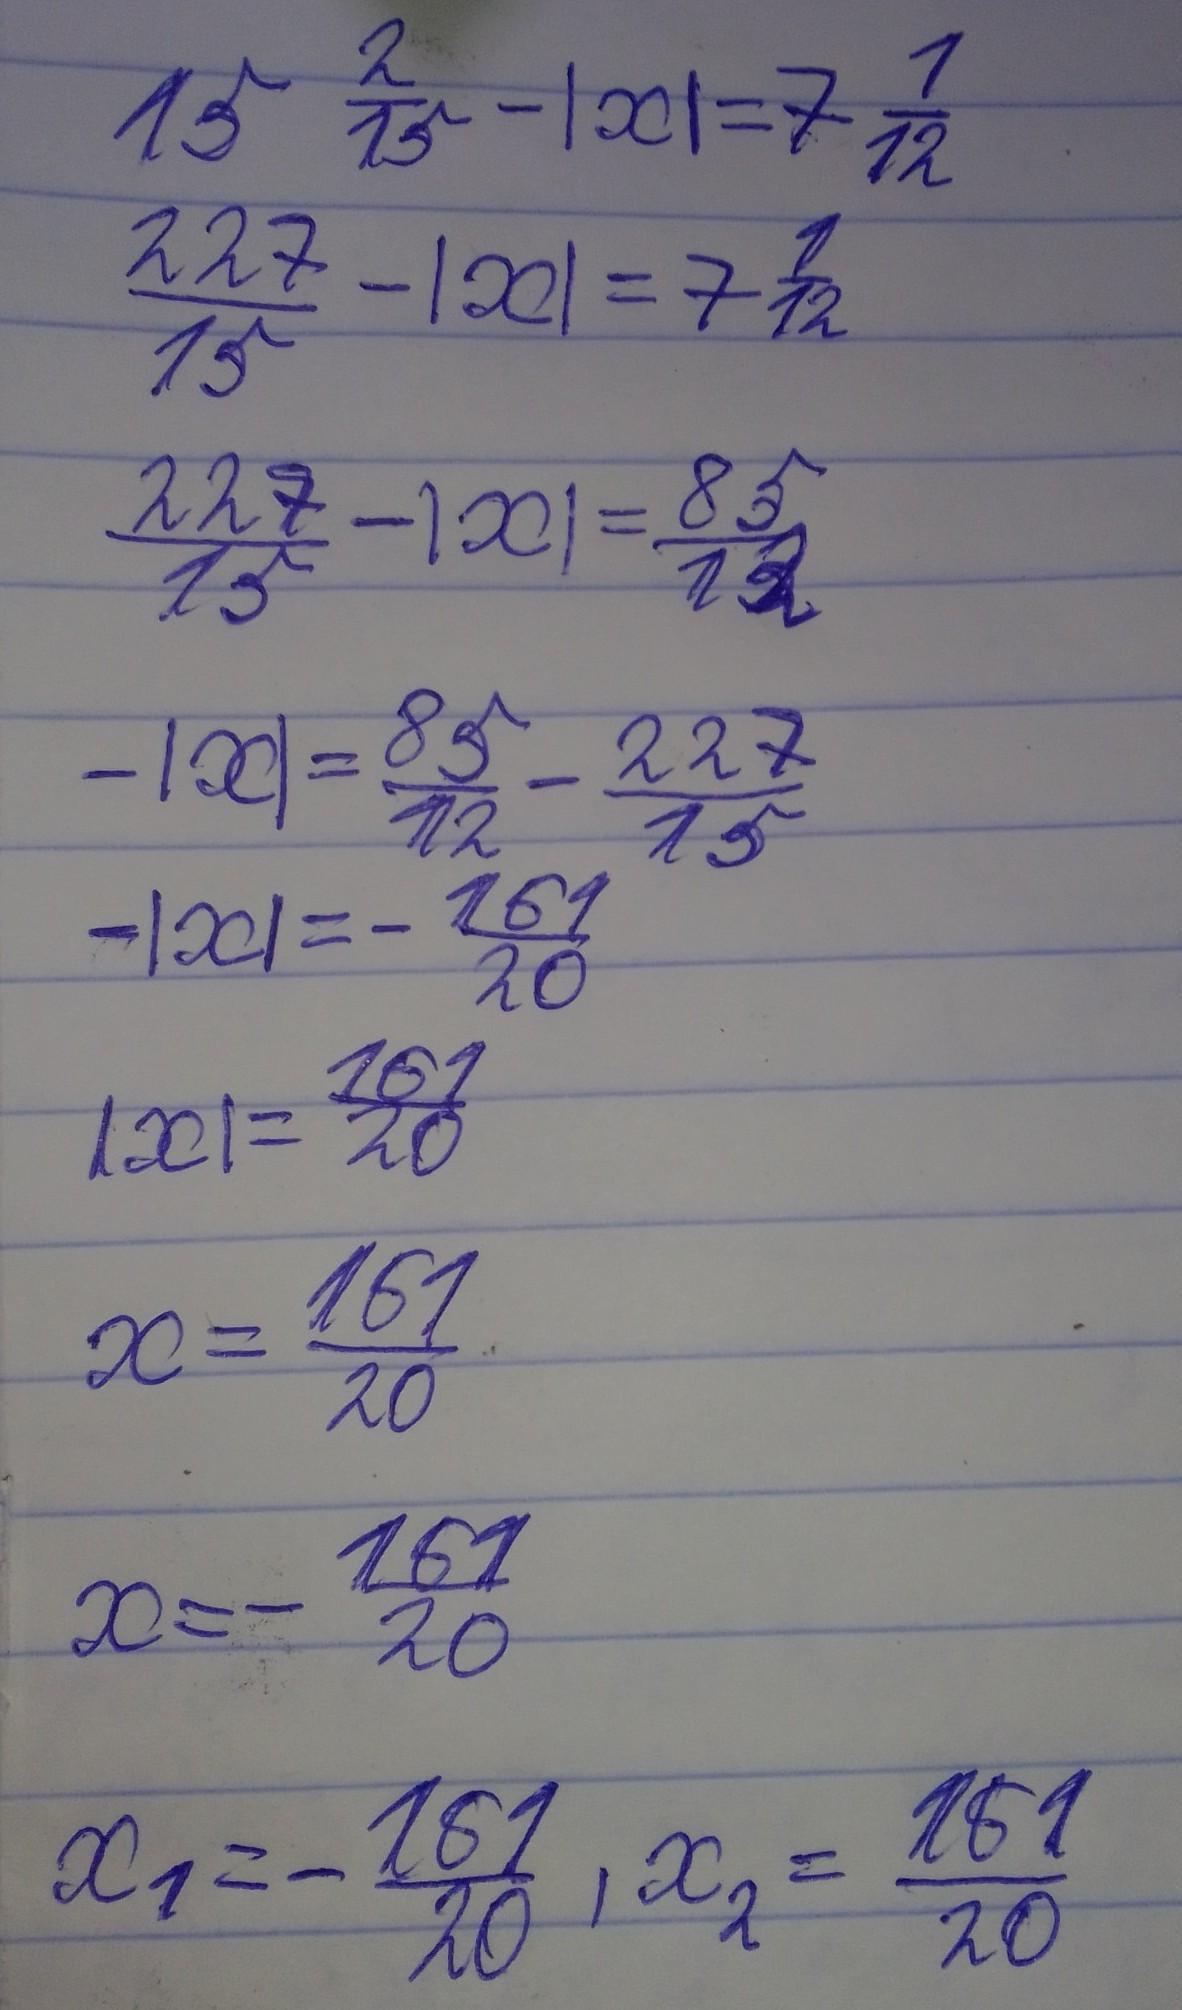 15 2/15 - |x| = 7 1/12
227/15 - |x| = 7 1/12
227/15 - |x| = 85/12
-|x| = 85/12 - 227/15
-|x| = - 161/20
|x| = 161/20
x = 161/20
x = - 161/20
x₁ = - 161/20 , x₂ = 161/20